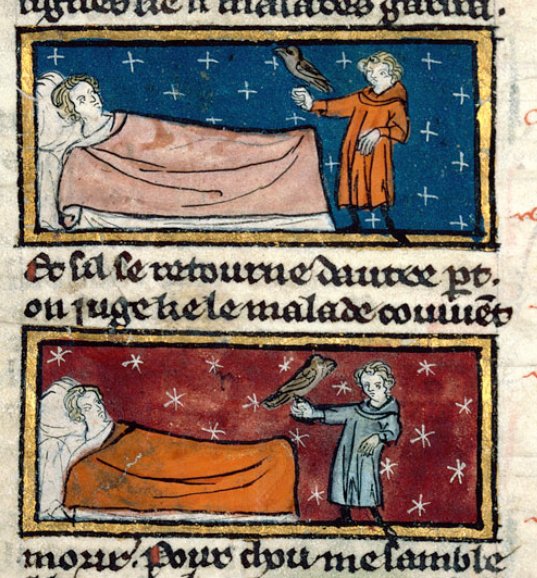 signes ke li malades garira.
Et sil se retourne dautre pt.
on iuge ke le malade couuēt
morir. Pour chou me samble